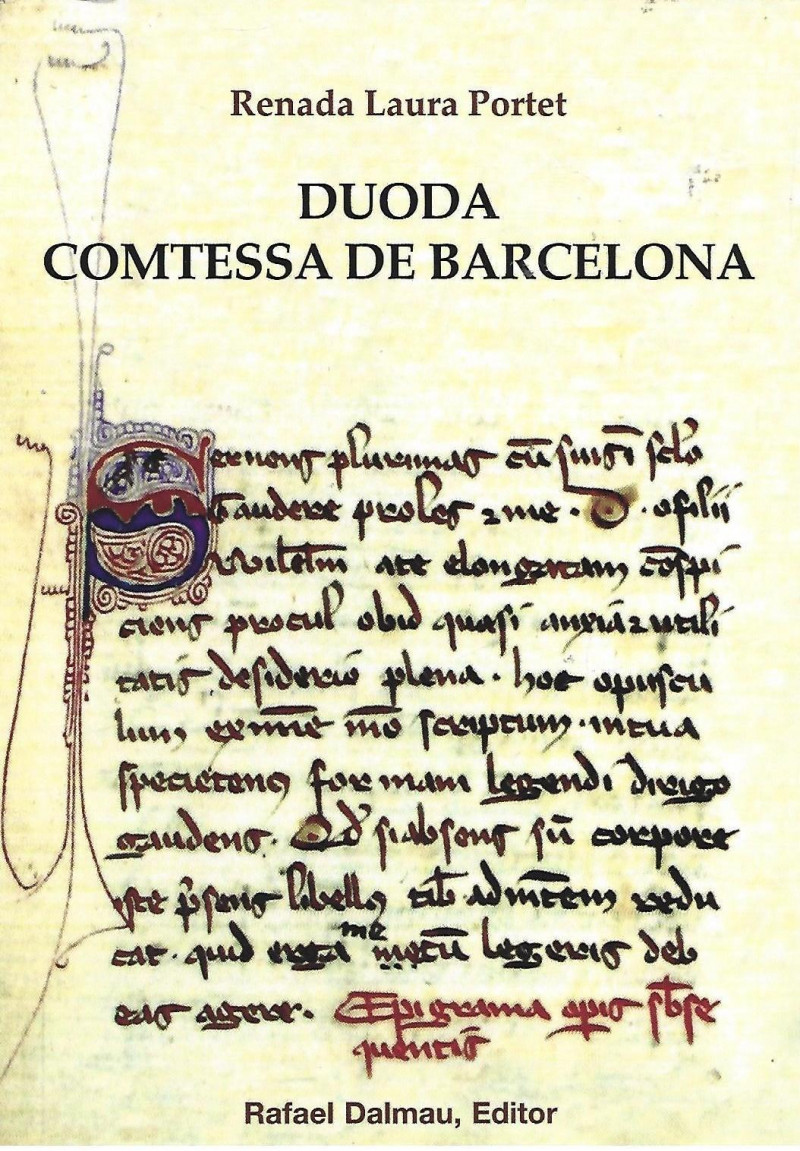 Renada Laura Portet
DUODA
COMTESSA DE BARCELONA
Cernens plurimas cū suis ī sclō
Gaudere proles ⁊ me · D · o filii
Wilhelm̄ a te elongatam cōspi
ciens procul ob id quasi anxia ⁊ utili
tatis desiderio plena · hoc opuscu
lum ex nōīe mō scriptum · in tua
specietenus formam legendi dirigo
gaudens · Qd' si absens sū corpore
iste p̄sens libellus tib̄ ad mētem redu
cat · quid erga me cū legeris deb
eas agere · Epigrama opis sb̄se
quentis
Rafael Dalmau, Editor